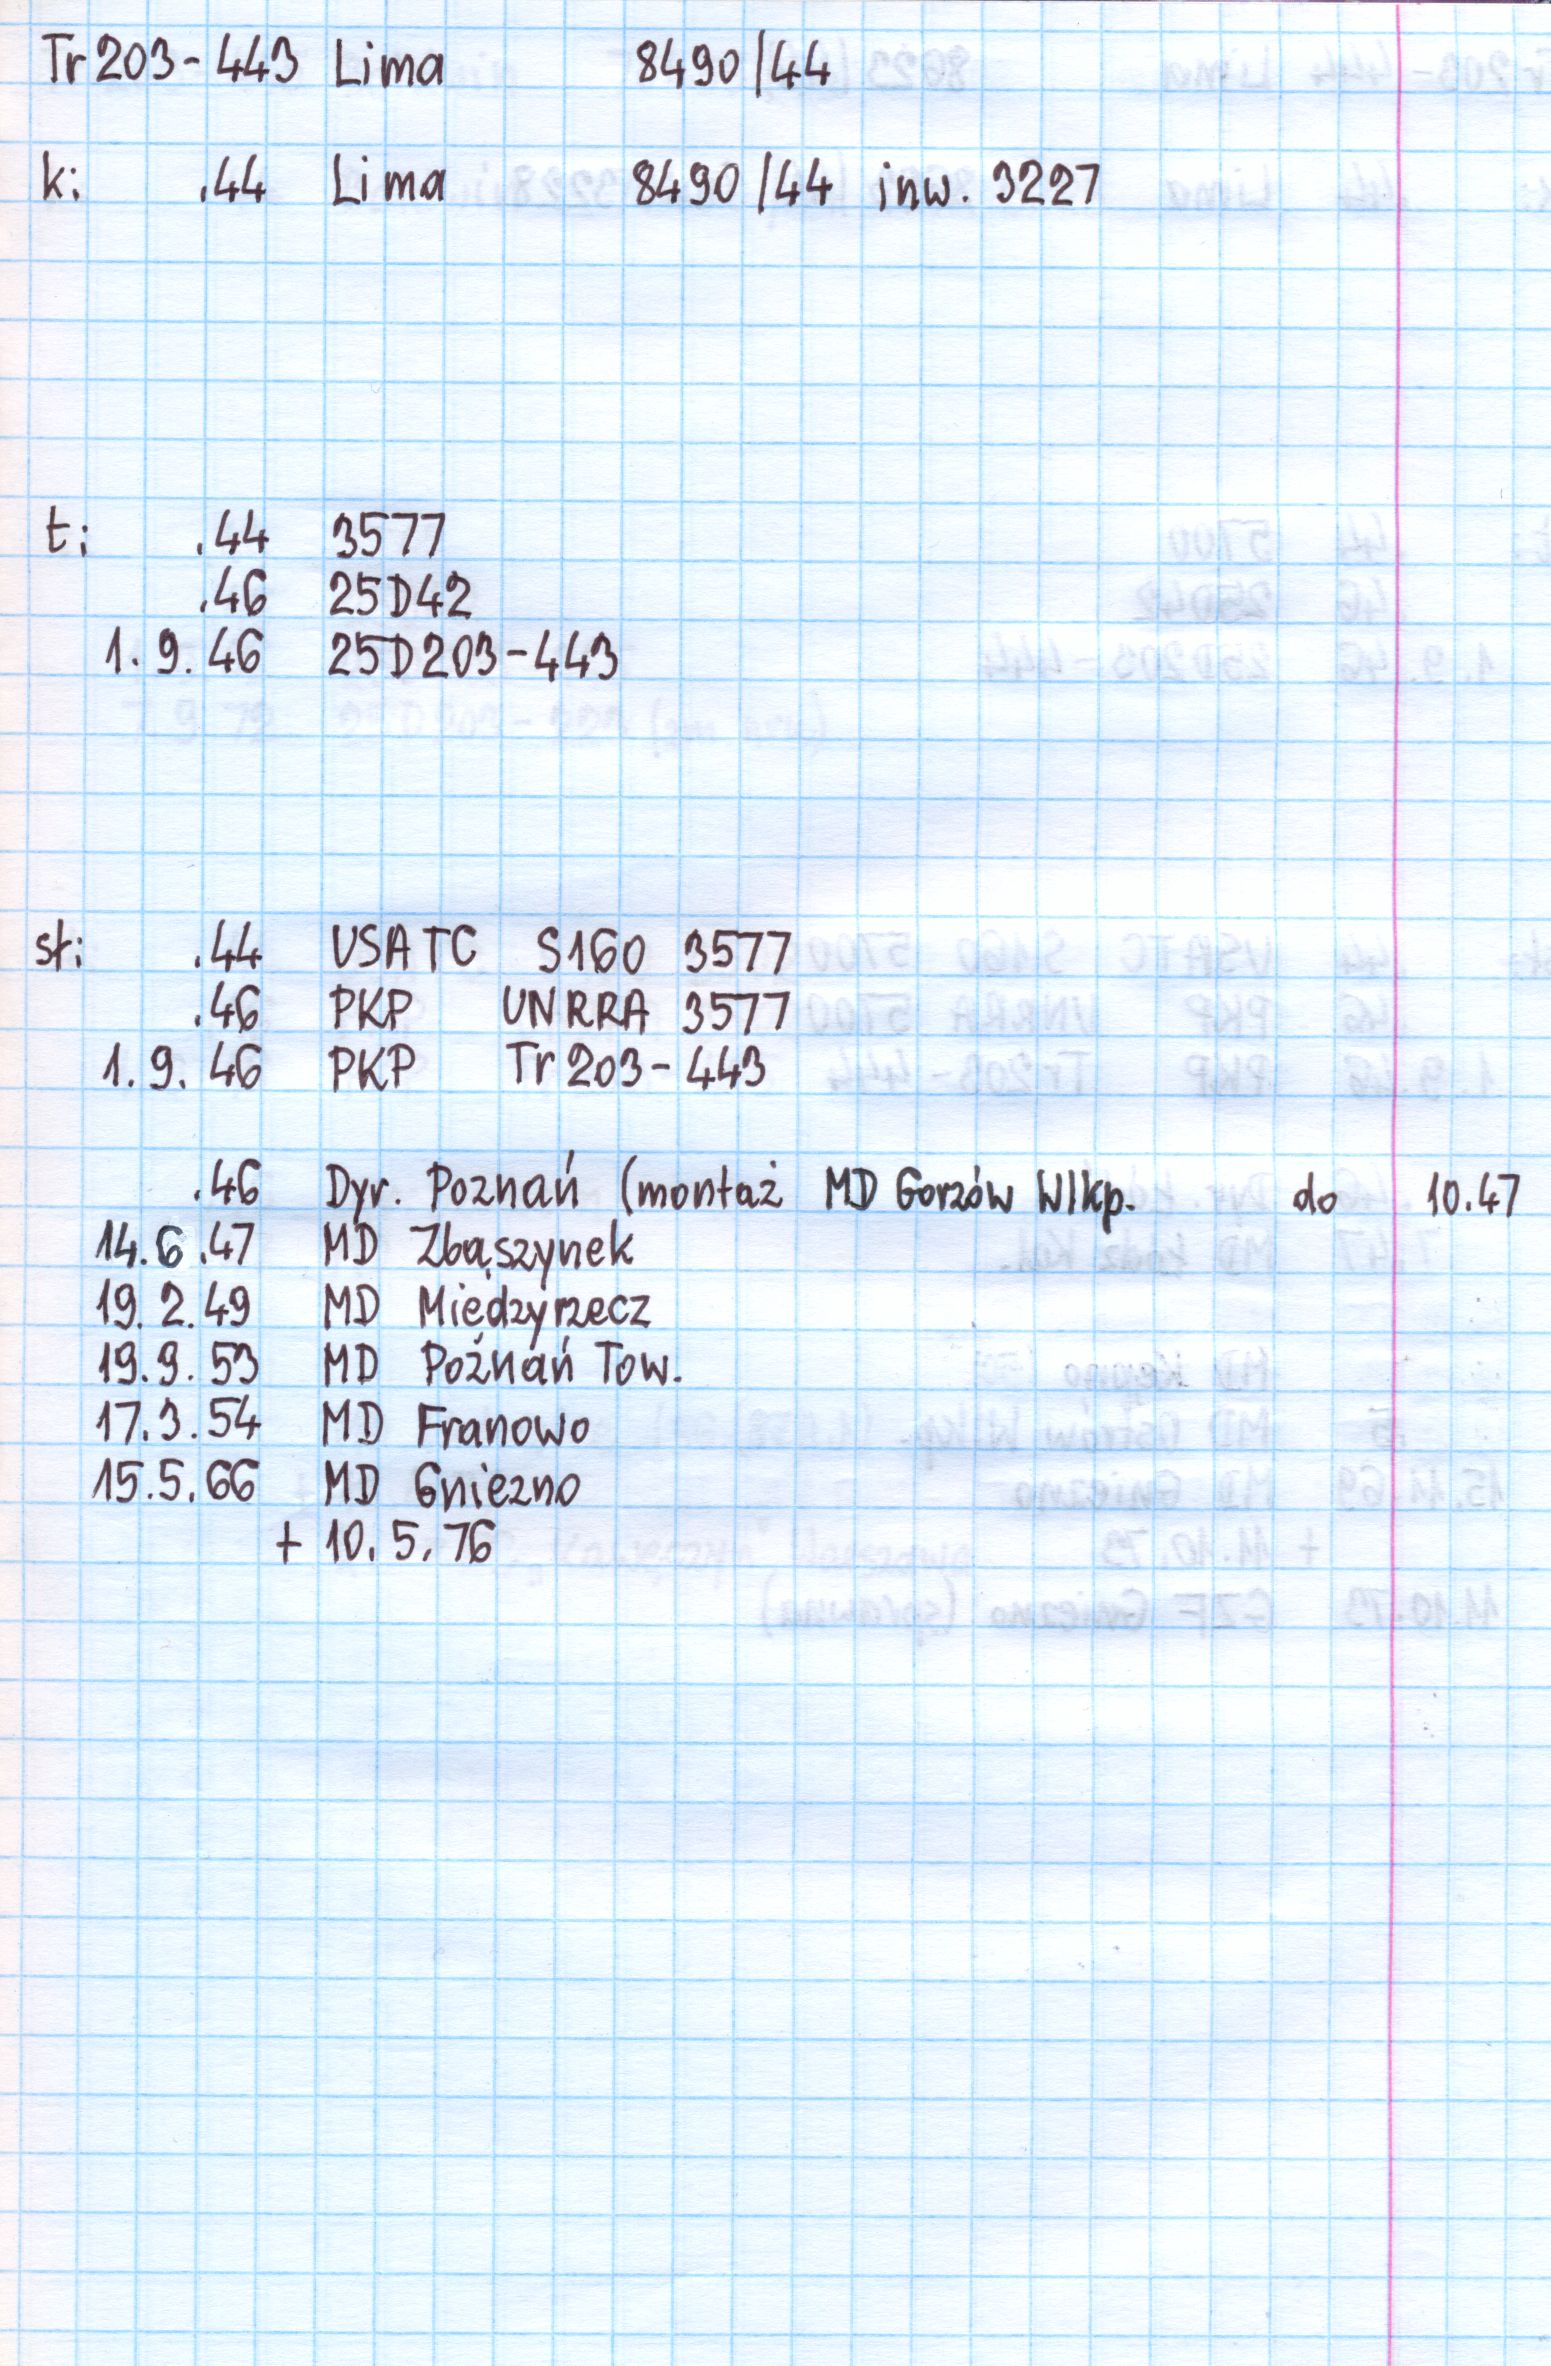 Tr203-443 Lima 8490/44
k: .44 Lima 8490/44 inw. 3227
t: .44 3577
.46 25D42
1.9.46 25D203-443
sł: .44 USATC S160 3577
.46 PKP UNRRA 3577
1.9.46 PKP Tr203-443
.46 Dyr. Poznań (montaż MD Gorzów Wlkp. do 10.47
14.6.47 MD Zbąszynek
19.2.49 MD Międzyrzecz
19.9.53 MD Poznań Tow.
17.3.54 MD Franowo
15.5.66 MD Gniezno
+ 10.5.76